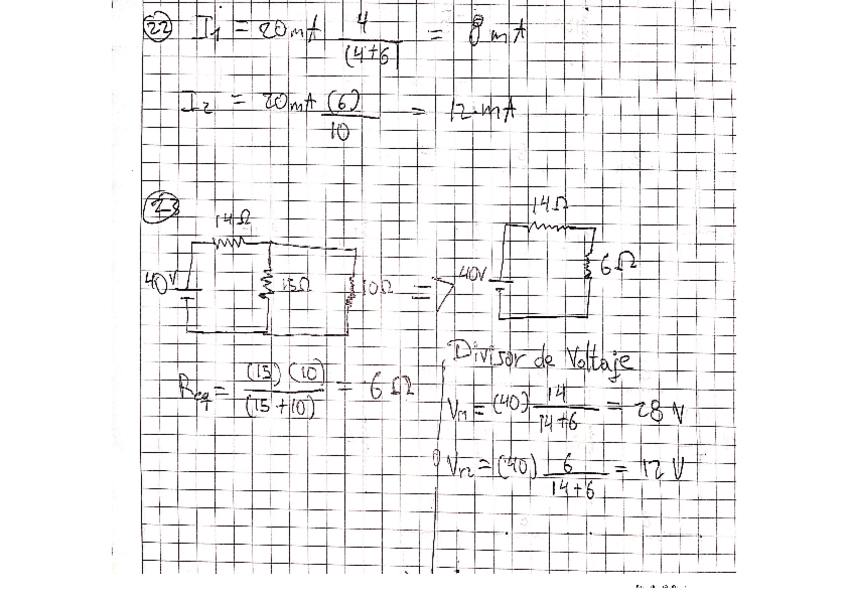 22 I1 = 20mA 4/(4+6) = 8 mA
I2 = 20mA (6)/10 = 12 mA
23
14Ω
40V
15Ω
10Ω
=>
14Ω
40V
6Ω
Req = (15)(10)/(15+10) = 6Ω
Divisor de Voltaje
Vr1 = (40) 14/14+6 = 28 V
Vr2 = (40) 6/14+6 = 12 V